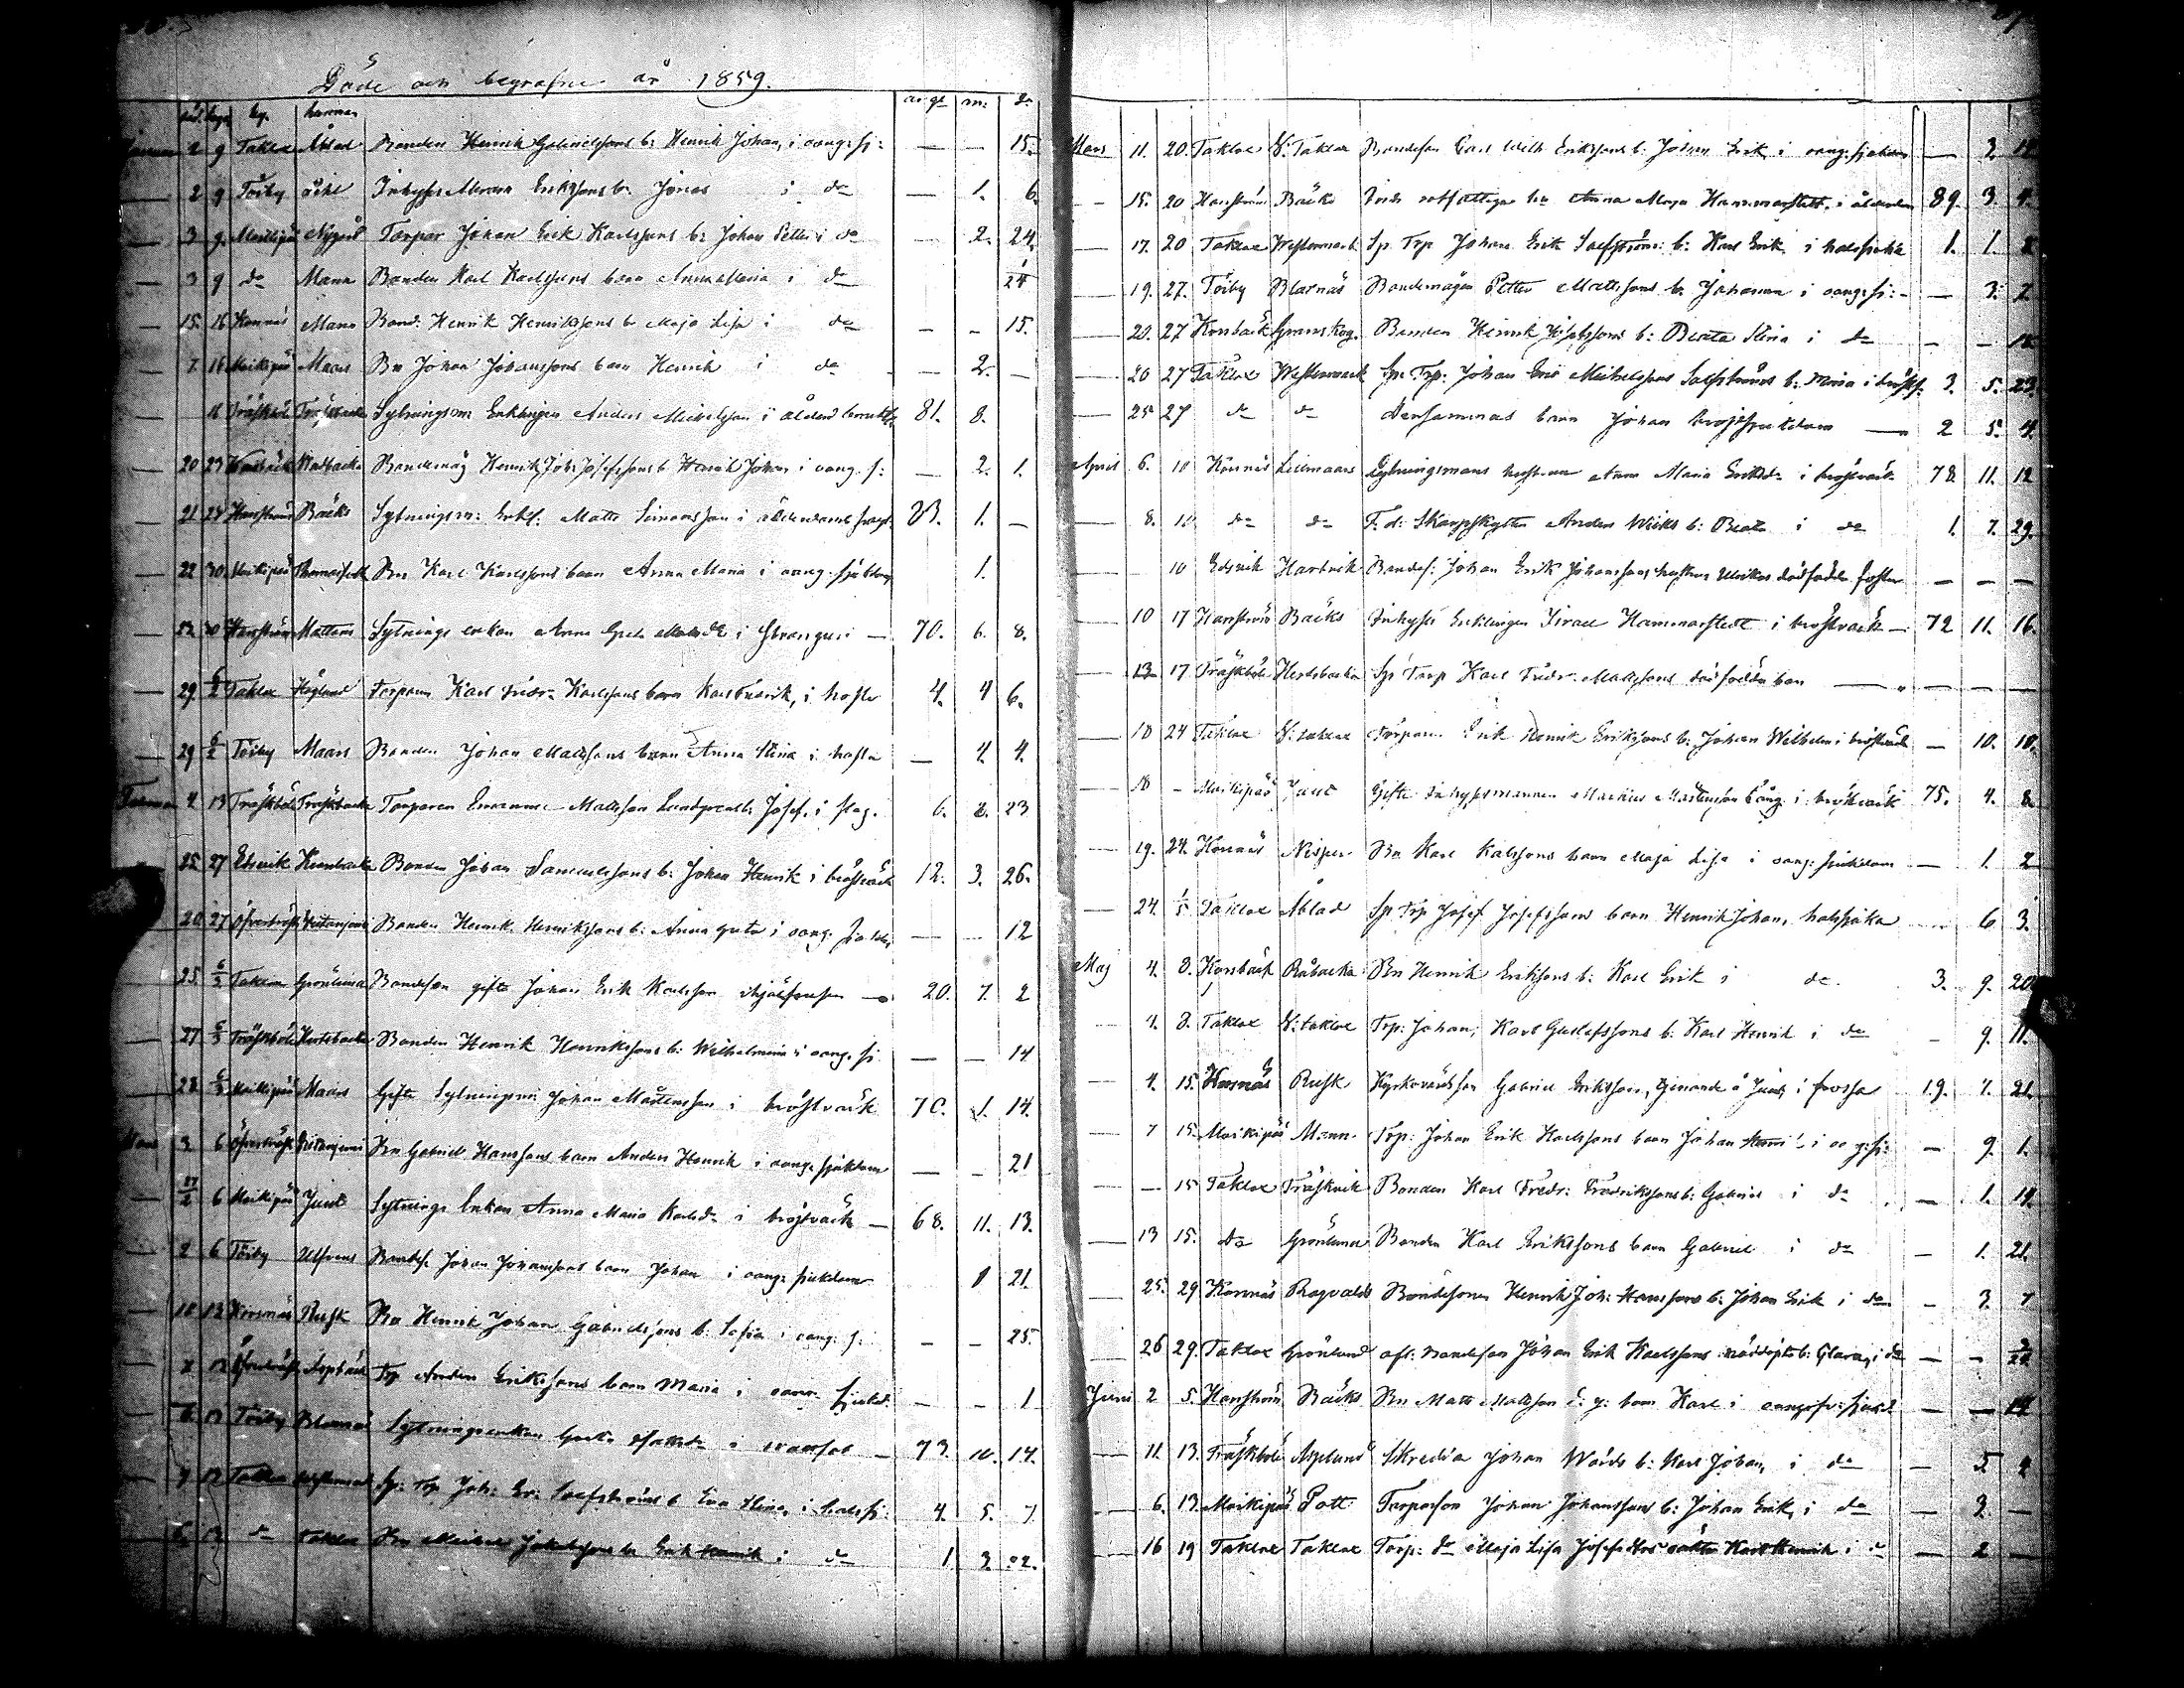 Döde och begrafne år 1859.
död begr. by. hemman år ge m: d:
2 9 Taklax Åblad Bonden Henrik Gabrielssons b: Henrik Johan, i oang: sj: — — 15.
— 2 9 Töiby Inhyses Eriksons b: Jonas i do — 1. 6.
— 3 9. Nygård Torpar Johan Erik Karlssons b: Johan Petter i do — 2. 24.
— 3 9 do Mann Bonden Karl Karlssons barn Anna Maria i do 24
— 15. 16 Korsnäs Mann Bond: Henrik Henrikssons b: Maja Lisa i do — — 15.
— 7. 16 Moikipää Maars Bn Johan Johanssons barn Henrik i do — 2. —
— 16 Träskböle Träskbacka Sytningsm: Enklingen Anders Mickelsson i 81. 8.
— 20 23 Korsbäck Råbacka Bondemåg Henrik Joh: Josefssons b: Henrik Johan i oang. s: — 2. 1.
— 21 24 Harrström Bäcks Sytningsm: Enkl: Matts Simonsson i 83. 1. —
— 22 30. Moikipää Bn Karl Karlssons barn Anna Maria i oang. sjukdom 1.
— 22 30 Harrström Mattans Sytnings enkan Anna Greta i Stranguri — 70. 6. 8.
— 29. 6/2 Taklax Högland Torparen Karl Fredr: Karlssons barn Karl Fredrik, i hosta 4. 4 6.
— 29 6/2 Töiby Maars Bonden Johan Mattssons barn Anna Stina i hosta — 4. 4.
4. 13 Träskböle Träskbacka Torparen Emanuel Mattsson b: Josef. i slag. 6. 23
25 27 Edsvik Bonden Johan Samuelssons b: Johan Henrik i bröstvärk 12. 3. 26.
20. 27 Bonden Henrik Henrikssons b: Anna Greta i oang. — — 12
— 25. 6/3 Taklax Grönlund Bondeson gifte Johan Erik Karlsson 20. 7. 2
— 27 6/3 Träskböle Hertsbacka Bonden Henrik Henrikssons b: Wilhelmina i oang. sj: — — 14
— 28 6/3 Moikipää Maars Gifte Sytningsm: Johan Mårtensson i bröstvärk 70. 1. 14.
Mars 3 6 Bn Gabriel Hanssons barn Anders Henrik i oang: sjukdom — — 21
— 27/2 6 Moikipää Juut Sytnings Enkan Anna Maria Karlsdr i bröstvärk — 68. 11. 13.
— 2 6 Töiby Ulfvens Bondes: Johan Johanssons barn Johan i oang: sjukdom 1 21.
— 10 13 Korsnäs Rusk Bn Henrik Johan Gabrielssons b: Sofia i oang: s: — — 25.
13 Trp Anders Erikssons barn Maria i sjukd. — — 1
— 6 13 Töiby Blaxnäs Sytningsenkan Greta i — 73. 10. 14.
— 7 13 Taklax Westermark Sp: Trp Joh: Er: Salfströms b: Eva Stina, i halssj: 4. 5. 7
— 13 do Taklax Bn b: Erik Henrik i do 1. 3. 22.
Mars 11. 20. Taklax Y: Taklax Bondeson Carl Wilh: Erikssons b: Johan Erik i oang. sjukdom — 3.
— 15. 20 Harrström Bäcks rotfattiga Anna Maja Hammarstedt i ålderdom 89. 3. 4.
— 17. 20 Taklax Westermark Sp. Trp Johan Erik Salfströms b: Karl Erik i halssjuka 1. 1.
— 19. 27. Töiby Blaxnäs Bondemågen Petter Mattssons b: Johanna i oang: sj: — — 3. 7.
— 20. 27 Korsbäck Granskog. Bonden Henrik Josefssons b: Beata Stina i do — —
— 20 27 Taklax Westermark Sp. Trp. Johan Eric Mickelssons Salfströms b: i 3. 5. 23.
— 25 27 do do densammas barn Johan bröstsjukdom — 2 5. 4.
April 6. 10 Korsnäs Lillmaars Sytningsmans hustrun Anna Maria Eriksdr i bröstvärk 78. 11. 12
— 8. 10. do do F. d: Skarpskytten Anders Wiiks b: Beata i do 1. 7. 29.
— 10 Edsvik Hartvik Bondes: Johan Erik Johanssons hustrus Ulrikas dödfödde foster — — —
— 10 17 Harrström Bäcks Inhyses Enklingen Israel Hammarstedt i bröstvärk — 72 11. 16.
— 13 17 Träskböle Hertsbacka Sp: Torp Karl Fredr. Mattssons dödfödde barn — — — —
— 18 24 Taklax Y: taklax Torparen Erik Henrik Erikssons b: Johan Wilhelm i bröstvärk — 10. 10.
— 18 — Moikipää Juut Gifte Inhysesmannen Markus Mårtensson Lång i bröstvärk 75. 4. 8.
— 19. 24. Korsnäs Nisses Bn Karl Kalssons barn Maja Lisa i oang: sjukdom — 1. 2
— 24. 1/5 Taklax Åblad Sp. Trp Josef Josefssons barn Henrik Johan, halssjuka — 6 3.
Maj 4. 8. Korsbäck Råbacka Bn Henrik Erikssons b: Karl Erik i do. 3. 9. 20.
— 4. 8. Taklax Y: taklax Trp: Johan, Karl Gustafssons b: Karl Henrik i do — 9. 11.
— 4. 15. Korsnäs Rusk Kyrkovärdsson Gabriel Eriksson, tjenande å Juut i frossa 19. 7. 21.
— 7 15. Moikipää Mann Trp: Johan Erik Karlssons barn Johan Henrik i oang: sj: — 9. 1.
— — 15 Taklax Träskvik Bonden Karl Fredr: Fredrikssons b: Gabriel i do — 1. 19.
— 13 15. do Grönlund Bonden Karl Erikssons barn Gabriel i do — 1. 21.
— 25. 29 Korsnäs Ragvalds Bondesonen Henrik Joh: Hanssons b: Johan Erik i do — 3. 7
— 26 29. Taklax Grönlund afl: Bondeson Johan Erik Karlssons nöddöpta b: Clara, i do — —
Juni 2 5. Harrström Bäcks Bn Matts Mattsson d: y: barn Karl i sjukd — — 14
— 11. 13. Träskböle Asplund Skreddar Johan Wärds b: Karl Johan, i do — 5. 4
— 6. 13. Moikipää Pott Torparson Johan Johanssons b: Johan Erik, i do — 3. —
— 16 19 Taklax Taklax Torp: dr Maja Lisa Josefsdrs oäkta Karl Henrik i do — 2 —